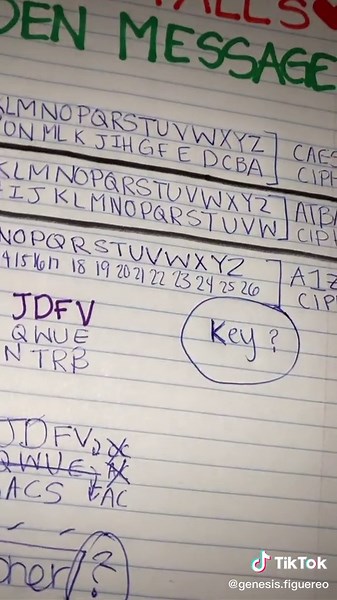 FALLS
DEN MESSAGE
LMNOPQRSTUVWXYZ
ON MLK JIHGF E DCBA
CAES
CIPH
KLMNOPQRSTUVWXYZ
IJ KLMNOPQRSTUVW
ATB
CIP
NOPQRSTUVWXYZ
14 15 16 17 18 19 20 21 22 23 24 25 26
A1Z
CIP
JDFV
QWUE
NTRB
Key ?
JDFV
QWUE
ACS AC
her/?
TikTok
@genesis.figuereo